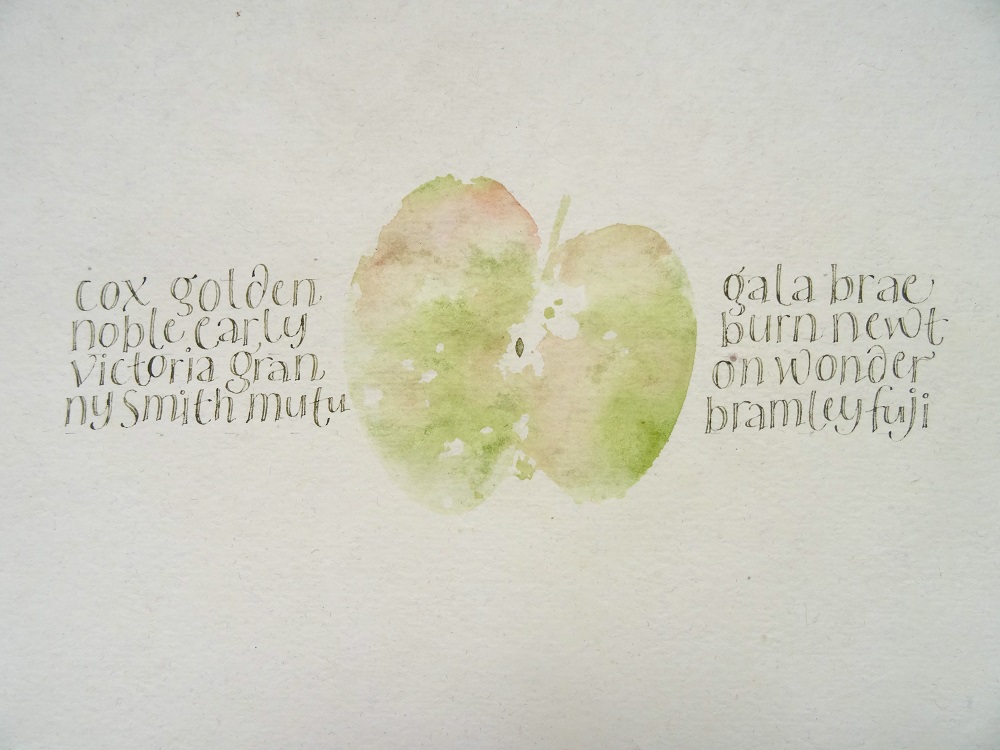 cox golden
noble early
victoria gran
ny smith mutu
gala brae
burn newt
on wonder
bramley fuji